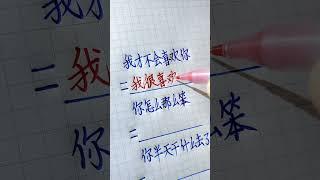 我才不会喜欢你
=我很喜欢
你怎么那么笨
=
你半天干什么去了
=